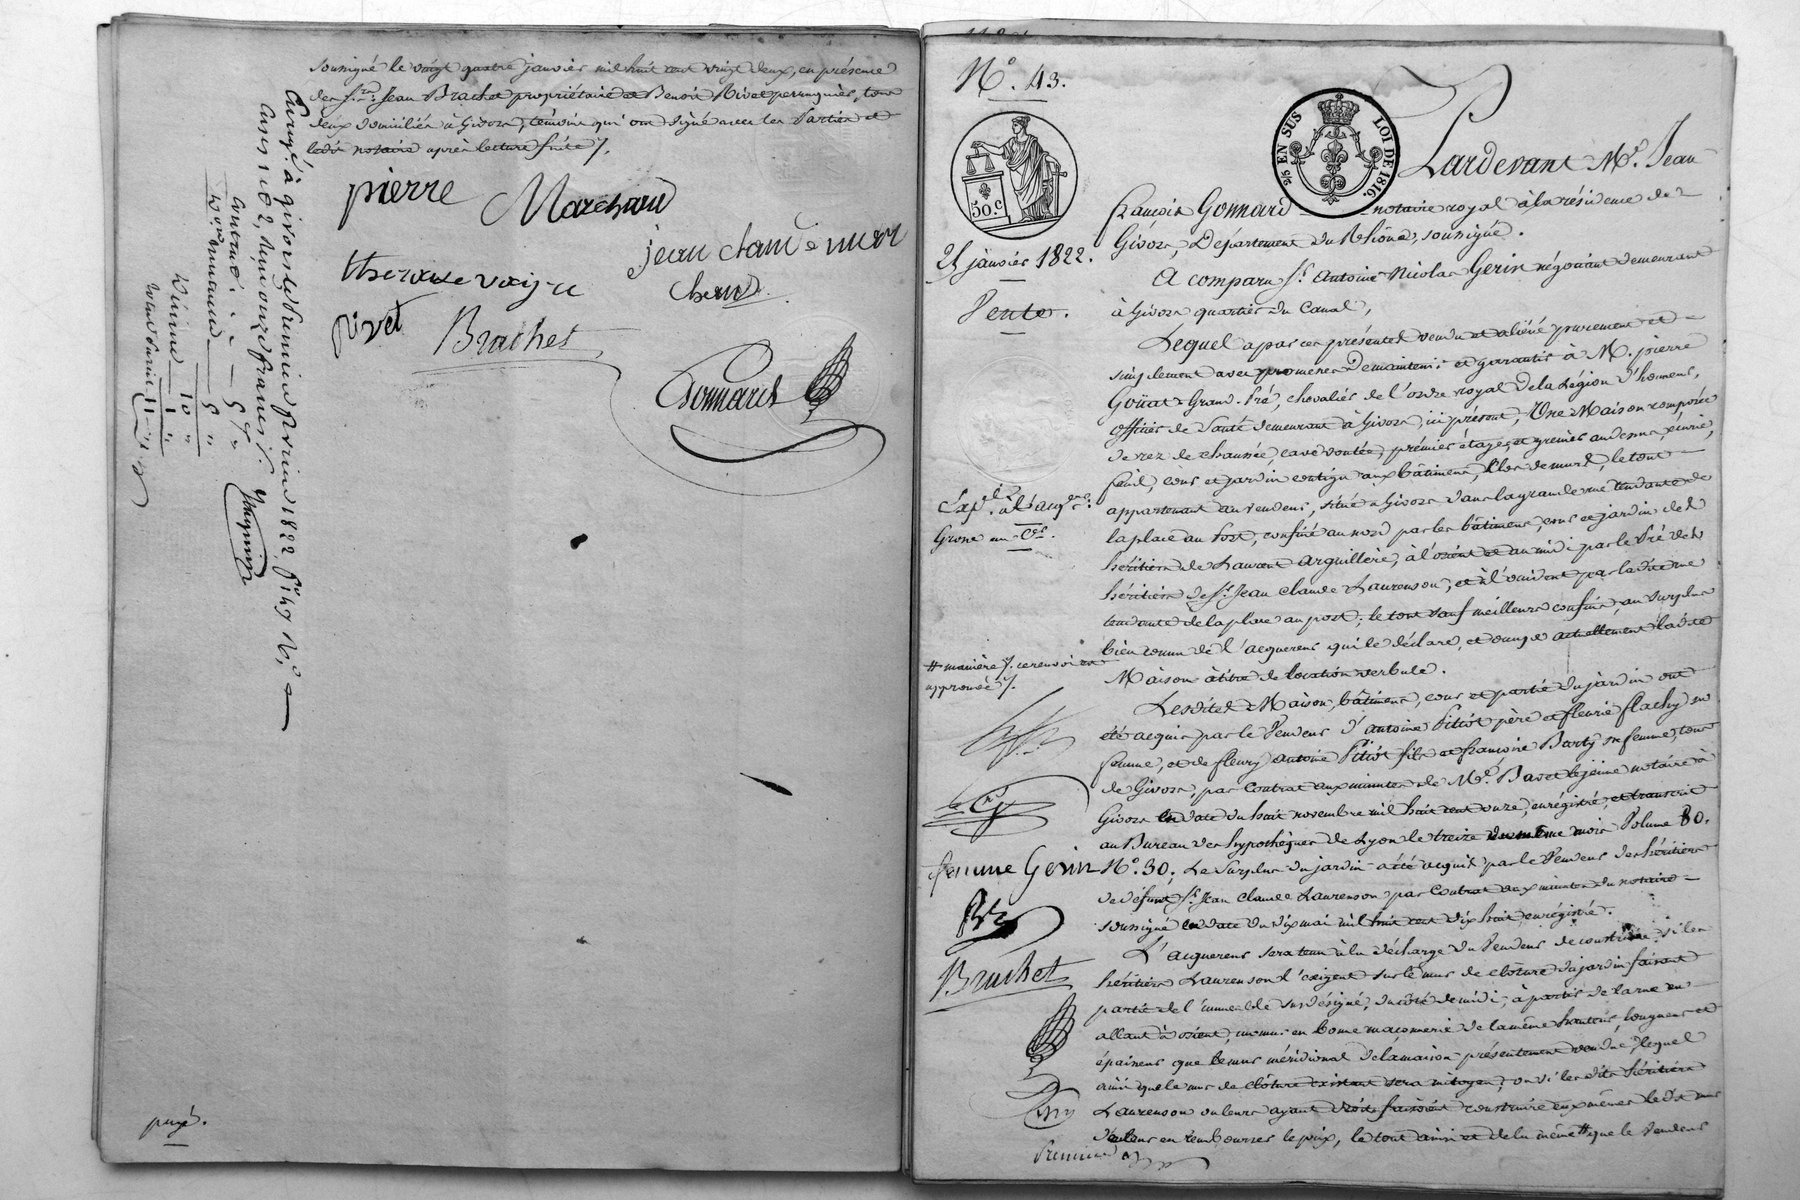 soussigné le vingt quatre janvier mil huit cent vingt deux, en présence
des Srs. Jean Brachet propriétaire et Benoit Rivet perruquier, tous
deux domiciliés à Givors, témoins qui ont signé avec les Parties et
ledit notaire après lecture faite ./.
pierre Marchand
jean claude mar
chand
rivet
Brachet
Gonnard
Enregé. à givors le premier février 1822, fo.
Case 1 et 2,
Vu onze francs
10 "
1 "
11 "
payé.
No. 43.
50. c
2/5 EN SUS LOI DE 1816.
25 janvier 1822.
Vente.
Grosse un Cer.
# manière ./. ce renvoi est
approuvé ./.
femme Gerin
Brachet
Pardevant Me. Jean
françois Gonnard notaire royal à la résidence de
Givors, Département du Rhône, soussigné.
A comparu Sr. Antoine Nicolas Gerin négociant demeurant
à Givors quartier du Canal,
Lequel a par ces présentes vendu et aliéné purement et
simplement avec promesse de maintenir et garantir à M. pierre
Goüat Grand-Pré, chevalier de l'ordre royal de la Légion d'honneur,
officier de Santé demeurant à Givors, ici présent, Une Maison composée
de rez de chaussée, cave voutée, premier étage, et grenier au dessus, écurie,
fenil, cour et jardin contigu aux bâtimens, clos de murs, le tout
appartenant au vendeur, situé à Givors dans la grande rue tendante de
la place au Port, confiné au nord par les bâtimens, cour et jardin des
héritiers de Laurent Arguillère, à l'orient et au midi par le Pré des
héritiers de Sr. Jean Claude Laurenson, et à l'occident par la dite rue
tendante de la place au port; le tout sauf meilleurs confins, au surplus
bien connu de l'acquereur qui le déclare, et occupe actuellement ladite
Maison à titre de location verbale.
Lesdites Maison, bâtimens, cour et partie du jardin ont
été acquis par le Vendeur d'antoine Pitiot père et fleurie flachy sa
femme, et de fleury antoine Pitiot fils et françoise Barty sa femme, tous
de Givors, par Contrat aux minutes de Me. Bavet le jeune notaire à
Givors en date du huit novembre mil huit cent onze, enregistré, et transcrit
au Bureau des hypothèques de Lyon le treize du même mois Volume 80.
No. 30; Le Surplus du jardin a été acquis par le Vendeur des héritiers
de défunt Sr. Jean Claude Laurenson par Contrat aux minutes du notaire
soussigné en date du dix mai mil huit cent dix huit enregistré.
L'acquereur sera tenu à la décharge du Vendeur de construire si les
héritiers Laurenson l'exigent sur le mur de clôture du jardin faisant
partie de l'immeuble susdésigné, du côté de midi, à partir de la rue en
allant à orient, un mur en bonne maçonnerie de la même hauteur, longueur et
épaisseur que le mur méridional de la maison présentement vendue, lequel
ainsi que le mur de clôture existant sera mitoyen; ou si les dits héritiers
Laurenson ou leurs ayant droits faisoient construire eux mêmes ledit mur
d'eux en rembourser le prix, le tout ainsi et de la même # que le Vendeur